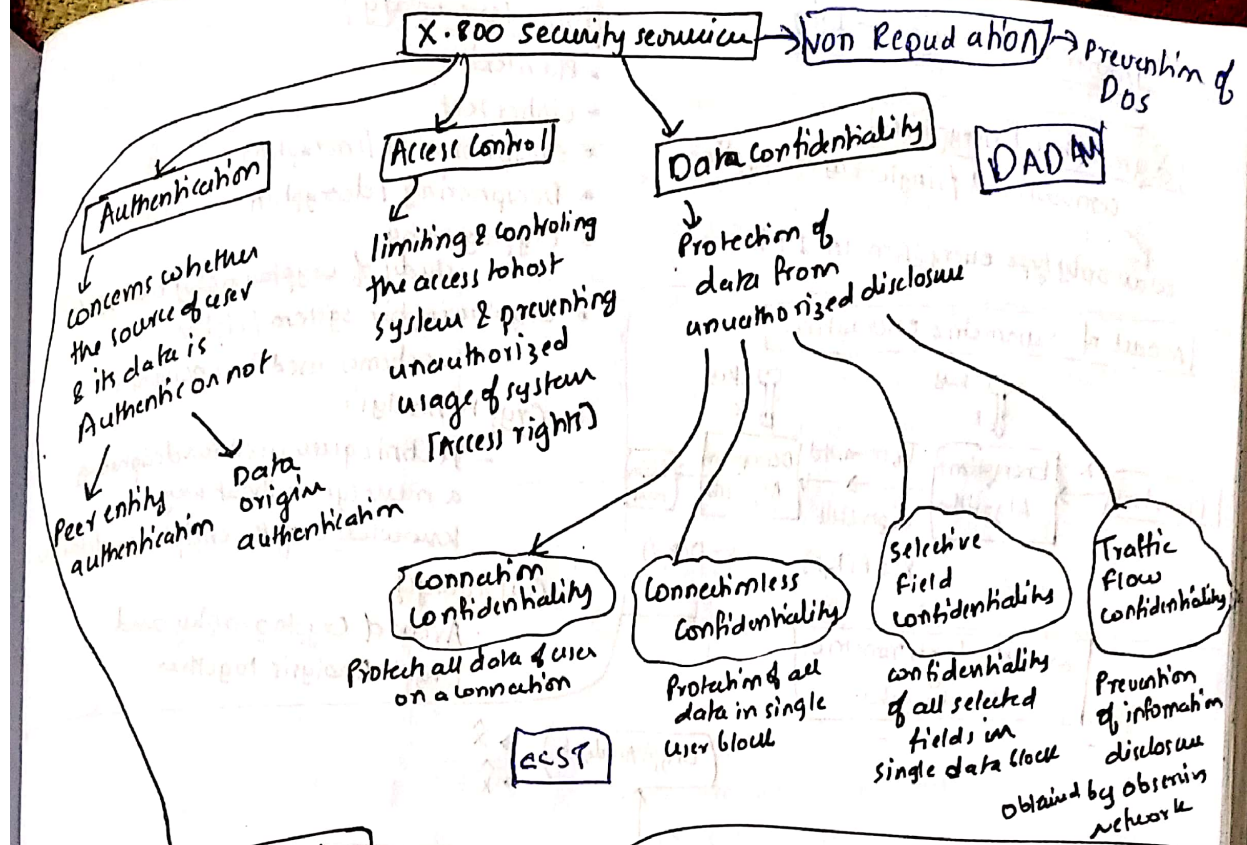 X.800 Security service
Non Repudation
Prevention of
DOS
Authentication
Access Control
Data Confidentiality
DADAN
concerns whether
the source of user
& its data is
Authentic or not
Peer entity
authentication
Data
origin
authentication
limiting & controling
the access to host
system & preventing
unauthorized
usage of system
[Access rights]
Protection of
data from
unauthorized disclosure
Connection
Confidentiality
Protech all data of user
on a connection
Connectionless
Confidentiality
Protection of all
data in single
user block
Selective
field
confidentiality
confidentiality
of all selected
fields in
single data block
Traffic
flow
confidentiality
Prevention
of information
disclosure
obtained by observing
network
CCST